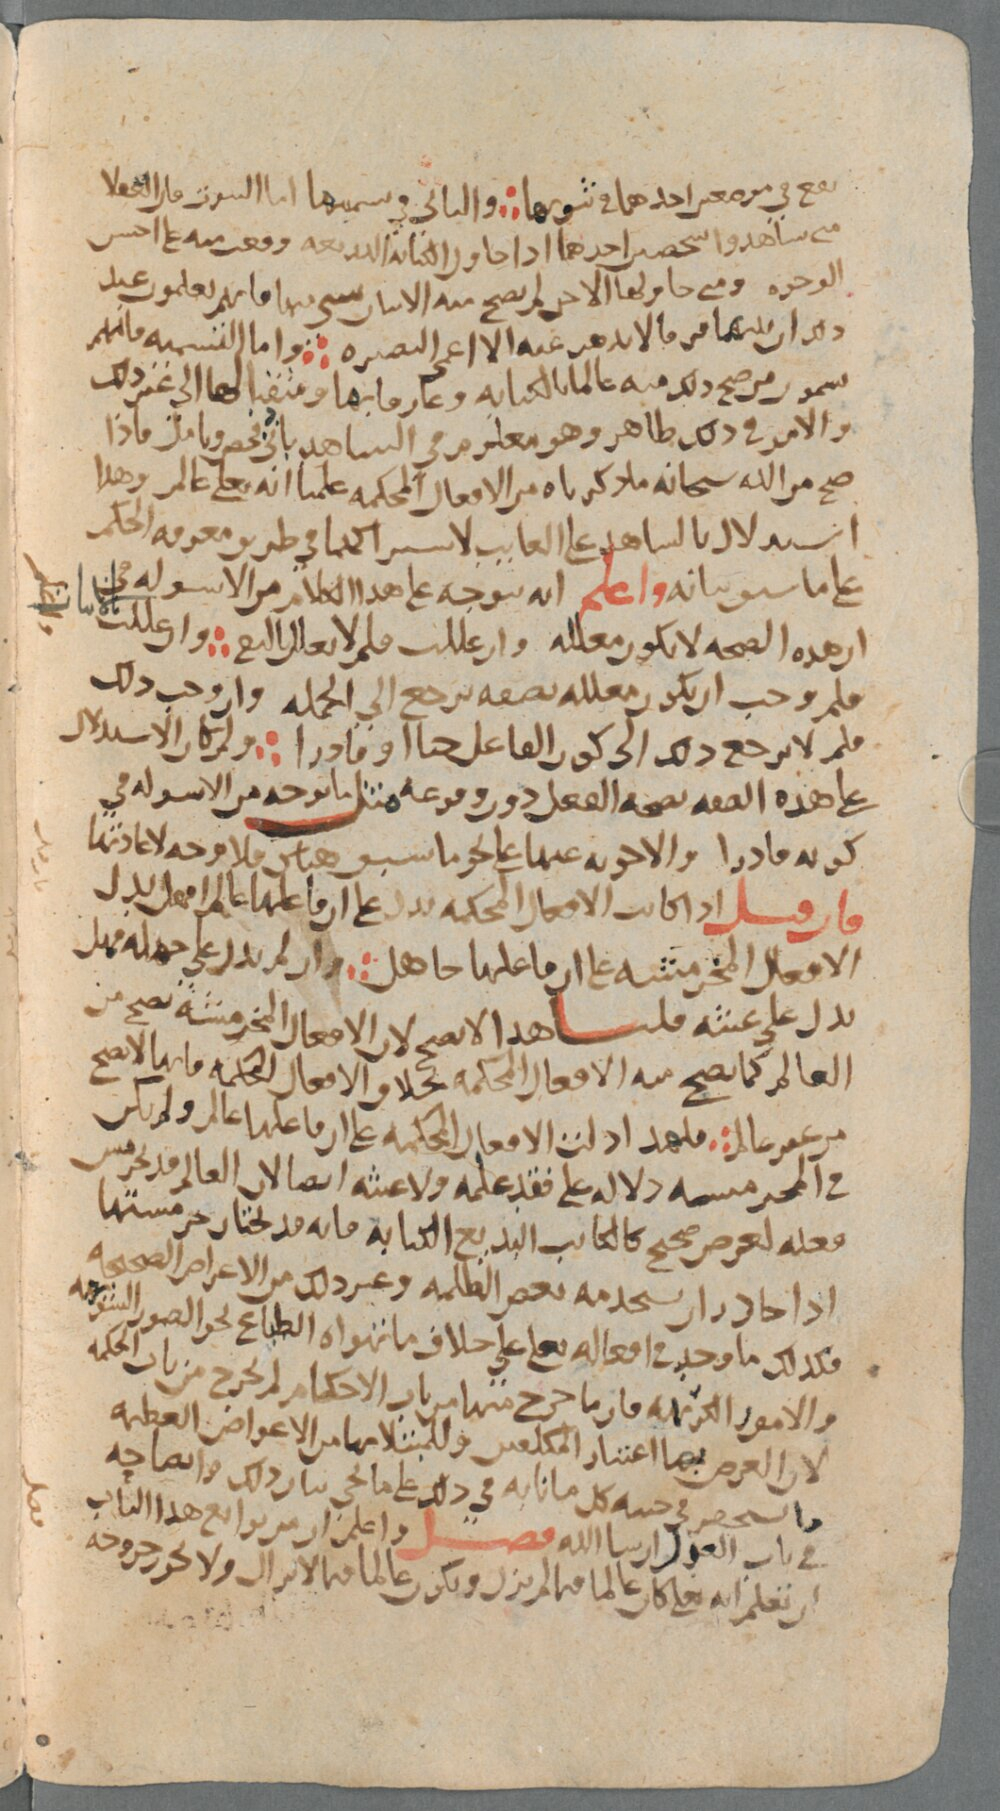 يقع في موضعين احدهما في ثبوتها والثاني في تسميتها اما الثبوت فان العقلا
متى شاهدوا شخصين احدهما اذا حاول الكتابة البديعة وقعت منه على احسن
الوجوه ومتى حاولها الاخر لم يصح منه الاتيان بشي منها فانهم يعلمون عند
ذلك ان بينهما فرقا لا يذهب عنه الا اعمى البصيرة واما التسمية فانهم
يسمون من صح ذلك منه عالما بالكتابة وعارفا بها ومتقنا لها الى غير ذلك
والامر في ذلك ظاهر وهو معلوم في الشاهد بادنى فحص وتامل فاذا
صح من الله سبحانه ما ذكرناه من الافعال المحكمة علمنا انه تعلى عالم وهذا
استدلال بالشاهد على الغايب لاشتراكهما في طريق معرفة الحكم
على ما سبق بيانه واعلم انه يتوجه على هذا الكلام من الاسولة
ان هذه الصحة لا تكون معللة وان عللت فلم لا تعلل بالنفع وان عللت
فلم وجب ان يكون معللة بصفة ترجع الى الجملة وان وجب ذلك
فلم لا يرجع ذلك الى كون الفاعل حيا او قادرا ولم كان الاستدلال
على هذه الصفة بصحة الفعل دون وقوعه مثل ما توجه من الاسولة في
كونه قادرا والاجوبة عنها على نحو ما سبق هناك فلا وجه لاعادتها
فان قيل اذا كانت الافعال المحكمة تدل على ان فاعلها عالم افهل تدل
الافعال المخرمشة على ان فاعلها جاهل وان لم تدل على جهله فهل
تدل على عبثه قلنا هذا لا يصح لان الافعال المخرمشة تصح من
العالم كما يصح منه الافعال المحكمة بخلاف الافعال المحكمة فانها لا تصح
من غير عالم فلهذا دلت الافعال المحكمة على ان فاعلها عالم ولم يكن
في المخرمشة دلالة على فقد علمه ولا عبثه ايضا لان العالم قد يخرمش
فعله لغرض صحيح كالكاتب البديع الكتابة فانه قد يختار خرمشتها
اذا حاذر ان يستخدمه بعض الظلمة وغير ذلك من الاغراض الصحيحة
فكذلك ما وجد في افعاله تعلى على خلاف ما تهواه الطباع نحو الصور المشوهة
والامور الكريهة فان ما خرج منها من باب الاحكام لم يخرج من باب الحكمة
لان الغرض بها اعتبار المكلفين وللمبتلا بها من الاعواض العظيمة
ما يستحقر في جنبه كل ما نابه في ذلك على ما يجي بيان ذلك وايضاحه
في باب العدل ان شا الله فصل واعلم ان من توابع هذا الباب
ان تعلم انه تعلى كان عالما فيما لم يزل ويكون عالما فيما لا يزال ولا يجوز خروجه